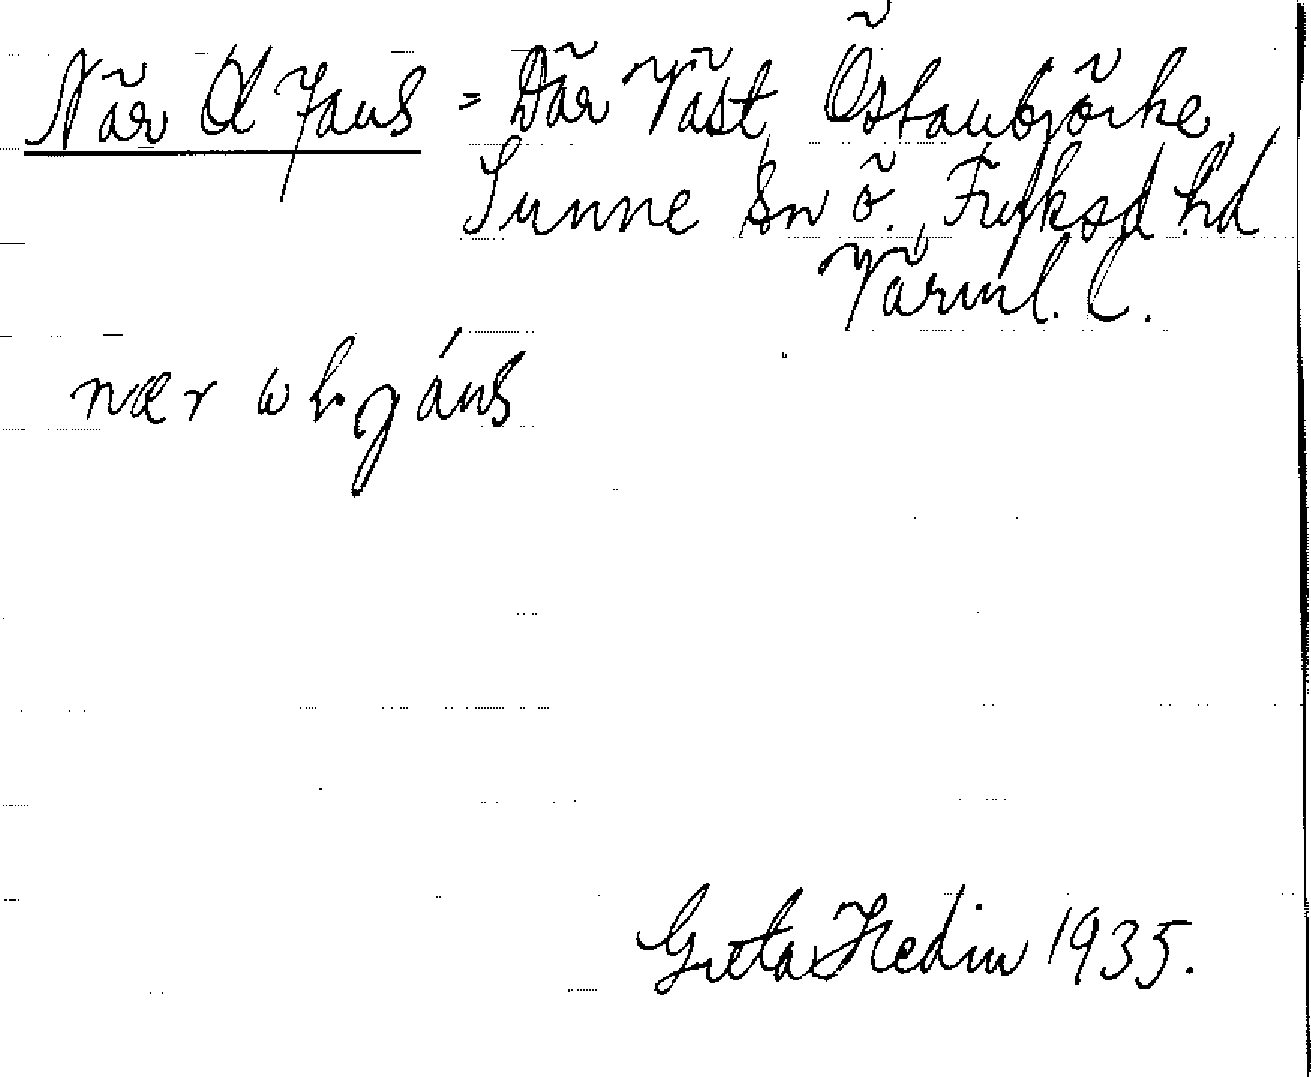 När Ol Jans = Där Väst, Östanbjörke,
Sunne sn ö. Fryksd. hd
Värml. l.
nær ω l. jáns
Greta Hedin 1935.